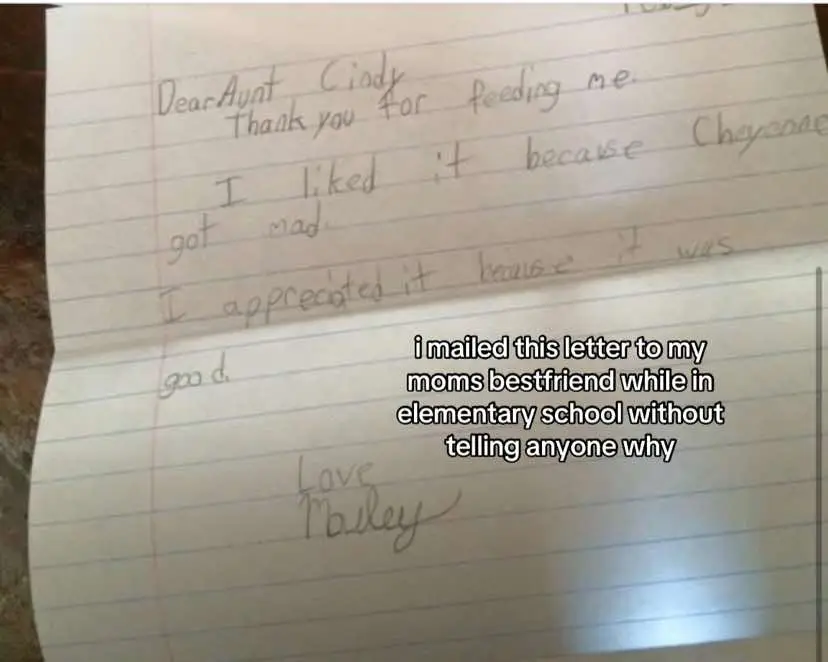 Dear Aunt Cindy
Thank you for feeding me.
I liked it because Cheyenne
got mad.
I appreciated it because it was
good.
i mailed this letter to my
moms bestfriend while in
elementary school without
telling anyone why
Love